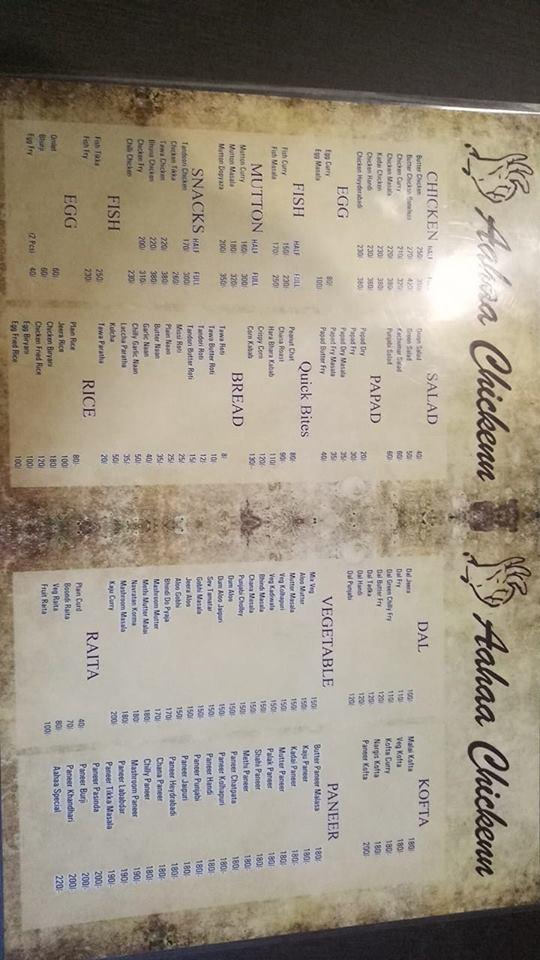 Aahaa Chickenn
CHICKEN HALF
Butter Chicken 250/-
Butter Chicken Boneless 270/- 420/-
Chicken Curry 210/-
Chicken Masala 220/- 380/-
Kadai Chicken 230/- 380/-
Chicken Handi 230/- 380/-
Chicken Heyderabadi 230/- 380/-
EGG
Egg Curry 80/-
Egg Masala 100/-
FISH HALF FULL
Fish Curry 150/- 230/-
Fish Masala 170/- 250/-
MUTTON HALF FULL
Mutton Curry 160/- 300/-
Mutton Masala 180/- 320/-
Mutton Dopyaza 200/- 350/-
SNACKS HALF FULL
Tandoori Chicken 170/- 300/-
Chicken Tikka 260/-
Tawa Chicken 220/- 380/-
Bhuna Chicken 220/- 380/-
Chicken Fry 200/- 310/-
Chilli Chicken 230/-
FISH
Fish Tikka 250/-
Fish Fry 230/-
EGG
Omlet 60/-
Bhurji 60/-
Egg Fry (2 Pcs) 40/-
SALAD
Onion Salad 40/-
Green Salad 50/-
Kachumar Salad 60/-
Punjabi Salad 60/-
PAPAD
Papad Dry 20/-
Papad Fry 30/-
Papad Dry Masala 35/-
Papad Fry Masala 35/-
Papad Butter Fry 40/-
Quick Bites
Peanut Chat 80/-
Chana Roast 90/-
Hara Bhara Kabab 110/-
Crispy Corn 120/-
Corn Kabab 130/-
BREAD
Tawa Roti 8/-
Tawa Butter Roti 10/-
Tandori Roti 12/-
Tandori Butter Roti 15/-
Missi Roti 25/-
Plain Naan 25/-
Butter Naan 35/-
Garlic Naan 40/-
Chilly Garlic Naan 50/-
Laccha Paratha 35/-
Kulcha 50/-
Tawa Paratha 20/-
RICE
Plain Rice 80/-
Jeera Rice 100/-
Chicken Biryani 180/-
Chicken Fried Rice 120/-
Egg Biryani 100/-
Egg Fried Rice 100/-
Aahaa Chickenn
DAL
Dal Jeera 100/-
Dal Fry 110/-
Dal Green Chilly Fry 110/-
Dal Butter Fry 120/-
Dal Tadka 120/-
Dal Handi 120/-
Dal Punjabi 120/-
VEGETABLE
Mix Veg 150/-
Aloo Mutter 150/-
Mutter Masala 150/-
Veg Kolhapuri 150/-
Veg Kadiwala 150/-
Bhindi Masala 150/-
Chana Masala 150/-
Punjabi Cholley 150/-
Dum Aloo 150/-
Dum Aloo Jaipuri 150/-
Sev Tamatar 150/-
Gobhi Masala 150/-
Jeera Aloo 150/-
Aloo Gobhi 150/-
Bhindi Do Pyaja 170/-
Mashroom Mutter 170/-
Methi Mutter Malai 180/-
Navratan Korma 180/-
Mashroom Masala 180/-
Kaju Curry 200/-
RAITA
Plain Curd 40/-
Boondi Raita 70/-
Veg Raita 80/-
Fruit Raita 100/-
KOFTA
Malai Kofta 180/-
Veg Kofta 180/-
Kofta Curry 180/-
Nargis Kofta 180/-
Paneer Kofta 200/-
PANEER
Butter Paneer Malasa 180/-
Kaju Paneer 180/-
Kadai Paneer 180/-
Mutter Paneer 180/-
Palak Paneer 180/-
Shahi Paneer 180/-
Methi Paneer 180/-
Paneer Chatpata 180/-
Paneer Kolhapuri 180/-
Paneer Handi 180/-
Paneer Punjabi 180/-
Paneer Jaipuri 180/-
Paneer Heydrabadi 180/-
Chana Paneer 180/-
Chilly Paneer 180/-
Mashroom Paneer 190/-
Paneer Lababdar 190/-
Paneer Tikka Masala 190/-
Paneer Pasinda 200/-
Paneer Burji 200/-
Paneer Khandhari 200/-
Aahaa Special 220/-